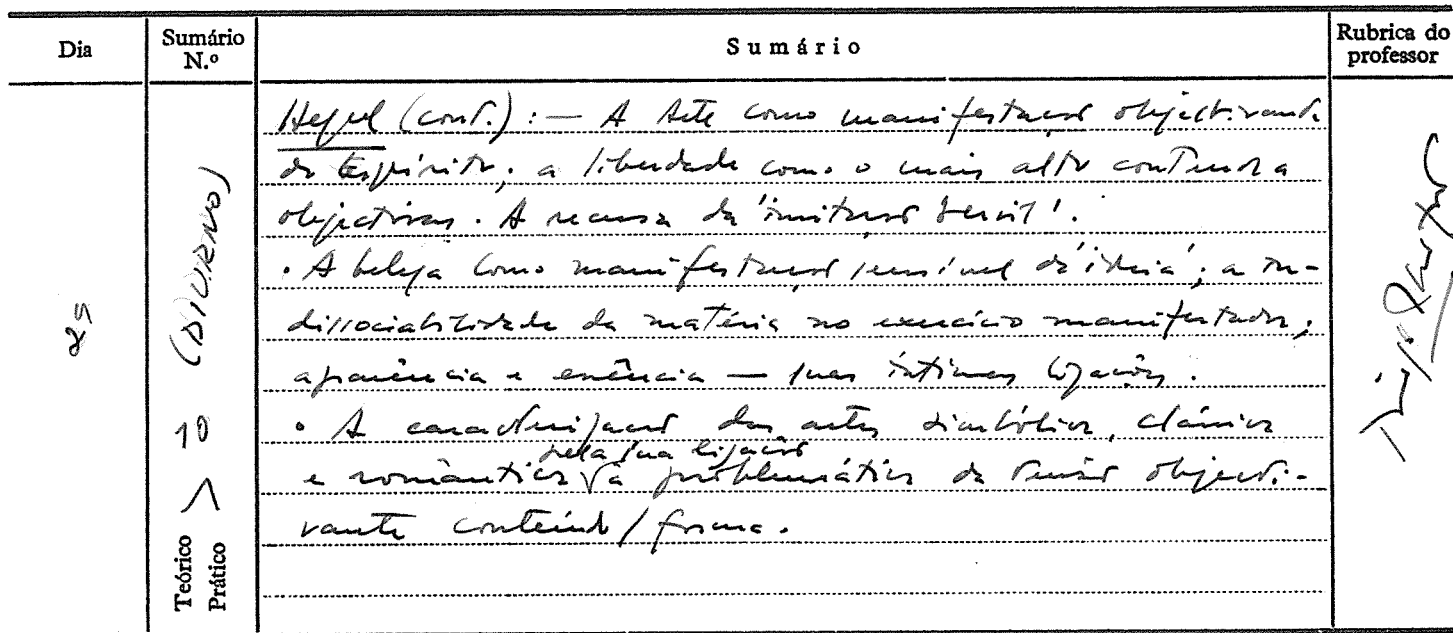 Dia
Sumário N.º
Sumário
Rubrica do professor
25
Teórico Prático > 10 (DIURNO)
Hegel (cont.): — A Arte como manifestação objectivante
do Espírito; a liberdade como o mais alto conteúdo a
objectivar. A recusa da 'imitação servil'.
. A beleza como manifestação sensível da 'ideia'; a in-
dissociabilidade da matéria no exercício manifestador;
aparência e essência — suas íntimas ligações.
. A caracterização das artes simbólica, clássica
e romântica pela sua ligação à problemática da tensão objecti-
vante conteúdo / forma.